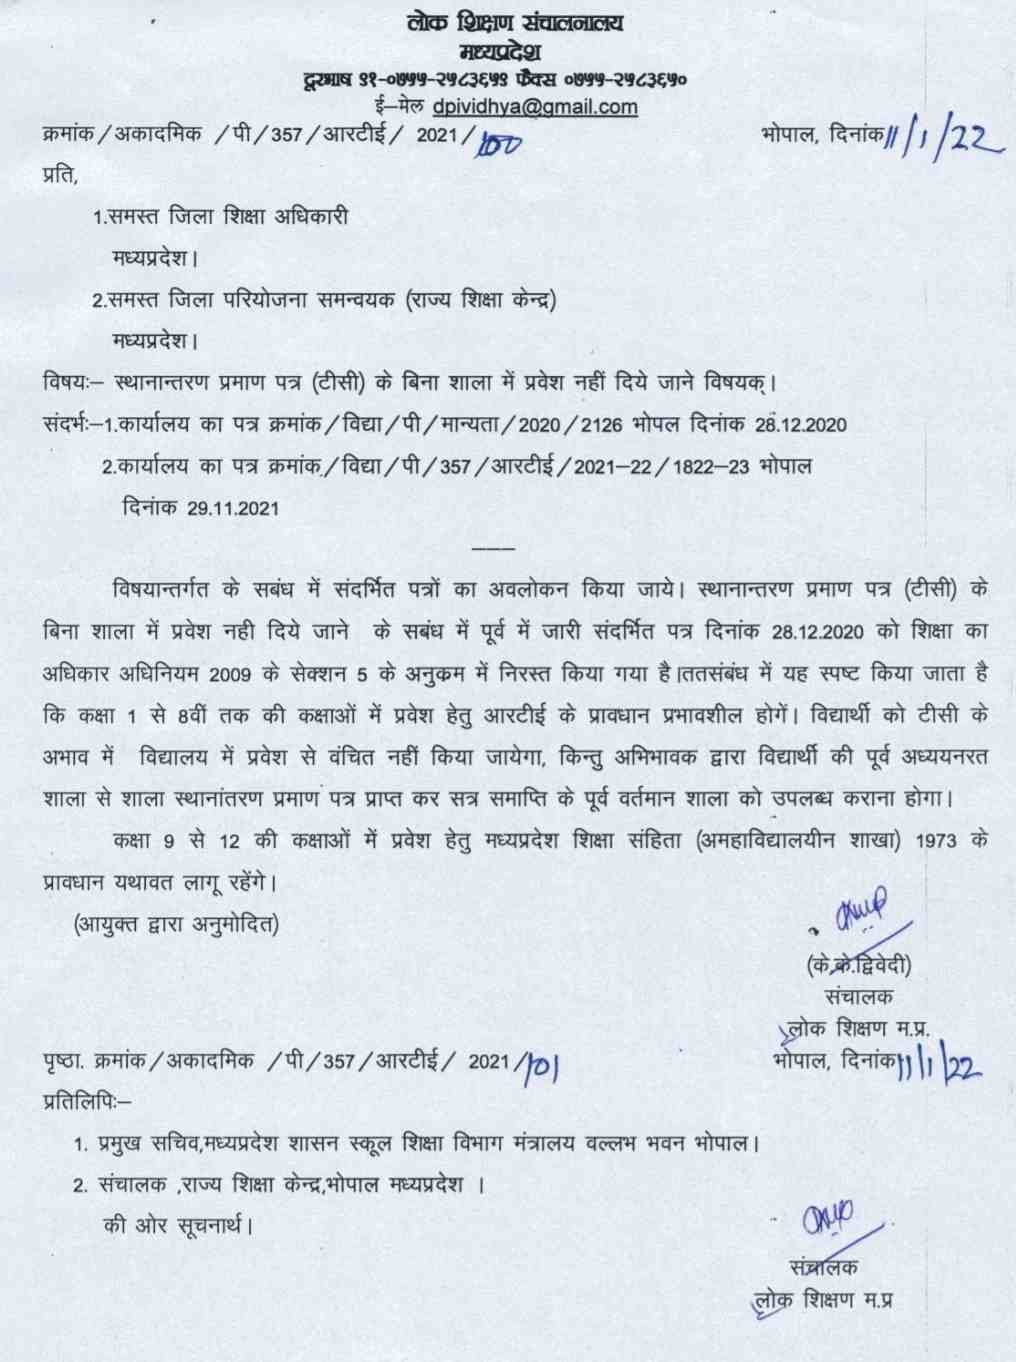 लोक शिक्षण संचालनालय
मध्यप्रदेश
दूरभाष ९१-०७५५-२५८३६५९ फैक्स ०७५५-२५८३६५०
ई–मेल dpividhya@gmail.com
क्रमांक/अकादमिक /पी/357/आरटीई/ 2021/100 भोपाल, दिनांक 11/1/22
प्रति,
1.समस्त जिला शिक्षा अधिकारी
मध्यप्रदेश।
2.समस्त जिला परियोजना समन्वयक (राज्य शिक्षा केन्द्र)
मध्यप्रदेश।
विषयः– स्थानान्तरण प्रमाण पत्र (टीसी) के बिना शाला में प्रवेश नहीं दिये जाने विषयक्।
संदर्भः–1.कार्यालय का पत्र क्रमांक/विद्या/पी/मान्यता/2020/2126 भोपल दिनांक 28.12.2020
2.कार्यालय का पत्र क्रमांक/विद्या/पी/357/आरटीई/2021–22/1822–23 भोपाल
दिनांक 29.11.2021
–––
विषयान्तर्गत के सबंध में संदर्भित पत्रों का अवलोकन किया जाये। स्थानान्तरण प्रमाण पत्र (टीसी) के
बिना शाला में प्रवेश नही दिये जाने के सबंध में पूर्व में जारी संदर्भित पत्र दिनांक 28.12.2020 को शिक्षा का
अधिकार अधिनियम 2009 के सेक्शन 5 के अनुकम में निरस्त किया गया है।ततसंबंध में यह स्पष्ट किया जाता है
कि कक्षा 1 से 8वीं तक की कक्षाओं में प्रवेश हेतु आरटीई के प्रावधान प्रभावशील होगें। विद्यार्थी को टीसी के
अभाव में विद्यालय में प्रवेश से वंचित नहीं किया जायेगा, किन्तु अभिभावक द्वारा विद्यार्थी की पूर्व अध्ययनरत
शाला से शाला स्थानांतरण प्रमाण पत्र प्राप्त कर सत्र समाप्ति के पूर्व वर्तमान शाला को उपलब्ध कराना होगा।
कक्षा 9 से 12 की कक्षाओं में प्रवेश हेतु मध्यप्रदेश शिक्षा संहिता (अमहाविद्यालयीन शाखा) 1973 के
प्रावधान यथावत लागू रहेंगे।
(आयुक्त द्वारा अनुमोदित)
(के.के.द्विवेदी)
संचालक
लोक शिक्षण म.प्र.
पृष्ठा. क्रमांक/अकादमिक /पी/357/आरटीई/ 2021/101 भोपाल, दिनांक 11/1/22
प्रतिलिपिः–
1. प्रमुख सचिव,मध्यप्रदेश शासन स्कूल शिक्षा विभाग मंत्रालय वल्लभ भवन भोपाल।
2. संचालक ,राज्य शिक्षा केन्द्र,भोपाल मध्यप्रदेश ।
की ओर सूचनार्थ।
संचालक
लोक शिक्षण म.प्र